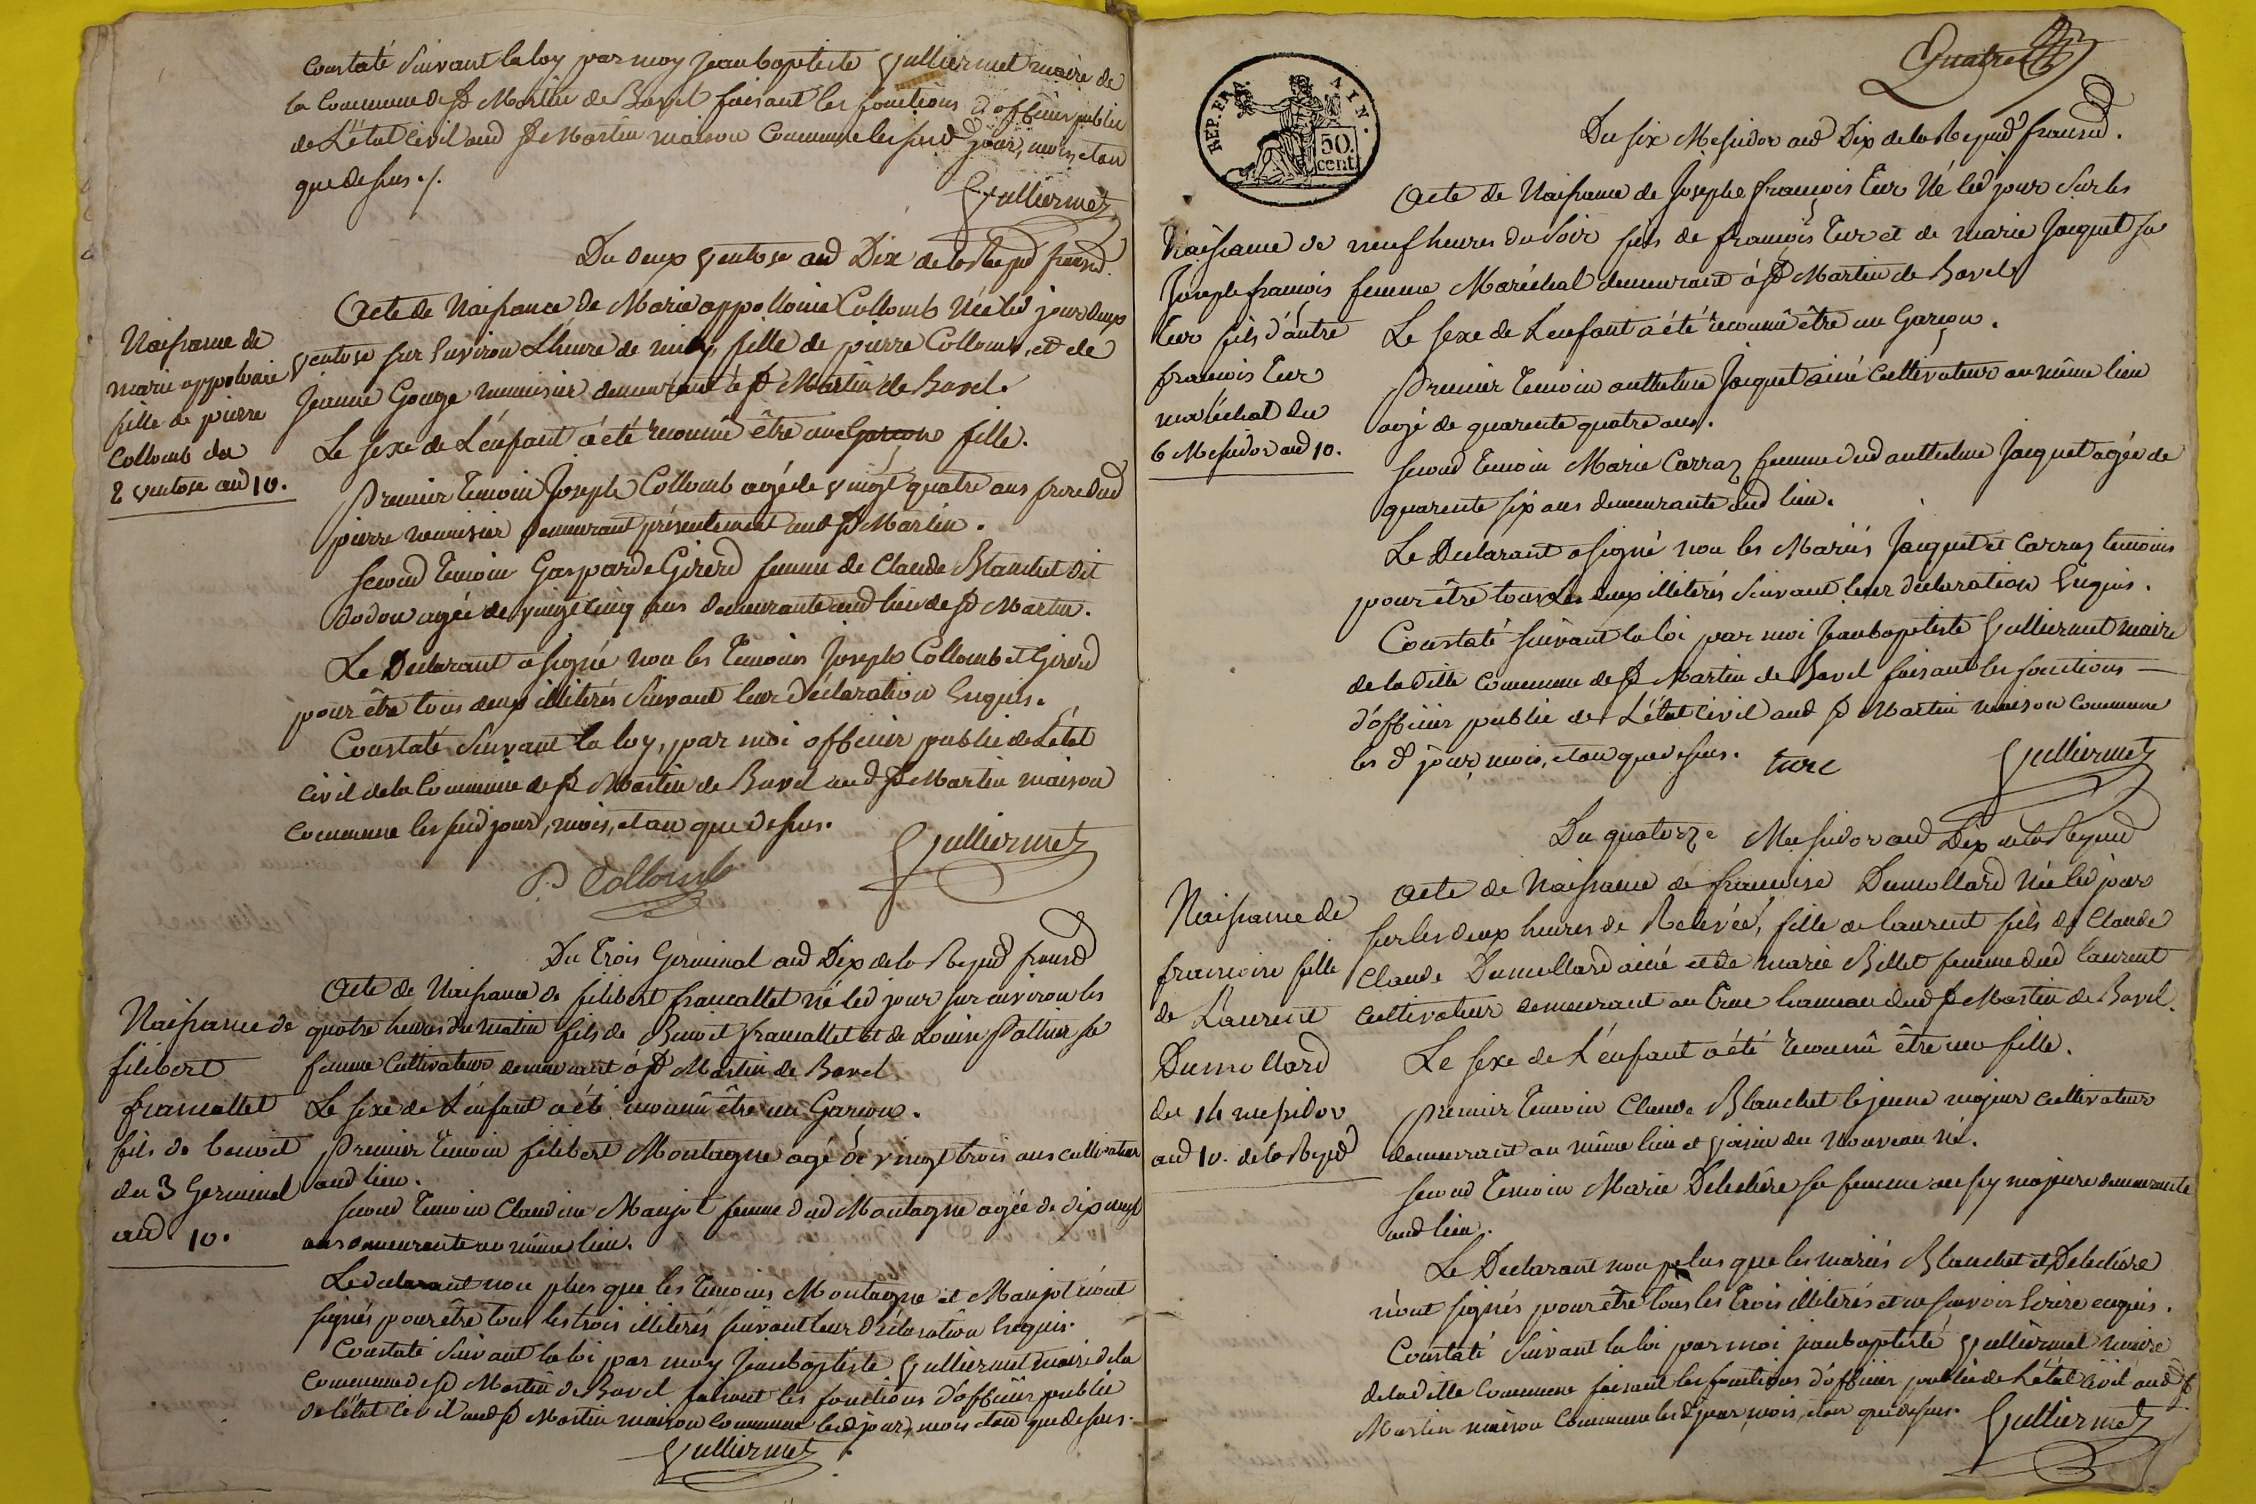 Constaté Suivant la loy par moy Jean baptiste Gulliermet maire de
la Commune de St Martin de Bavel faisant les fonctions d'officier public
de L'état Civil aud St Martin maison Commune les susd jour, mois, et an
que dessus ./.
Gulliermet
Du deux Ventose and Dix de la Repud fransd.
Naissance de
marie appolonie
fille de pierre
Collomb du
2 ventose and 10.
Acte de Naissance de Marie appollonie Collomb Née led jour deux
Ventose sur Environ L'heure de midy, fille de pierre Collomb, et de
Jeanne Gouge menuisier demeurant à St Martin de Bavel.
Le sexe de L'enfant a été reconnû être une Garçon fille.
Premier Temoin Joseph Collomb agé de vingt quatre ans frere dud
pierre menuisier demeurant présentement aud St Martin.
Second Temoin Gasparde Girerd femme de Claude Blanchet dit
dodon agée de vingt cinq ans demeurante aud lieu de St Martin.
Le Déclarant a signé non les Temoins Joseph Collomb et Girerd
pour être tous deux illiterés Suivant leur déclaration Enquis.
Constaté Suivant la loy, par moi officier public de L'état
Civil de la Commune de St Martin de Bavel aud St Martin maison
Commune les susd jour, mois, et an que dessus.
P. Collomb
Gulliermet
Du Trois Germinal and Dix de la Repud fransd
Naissance de
filibert
francallet
fils de benoit
du 3 Germinal
and 10.
Acte de Naissance de filibert francallet né led jour sur environ les
quatre heures du matin fils de Benoit francallet et de Louise Pallier sa
femme Cultivateur demeurant à St Martin de Bavel
Le sexe de L'enfant a été reconnû être un Garçon.
Premier Temoin filibert Montagne agé de vingt trois ans cultivateur
aud lieu.
Second Temoin Claudine Manjot femme dud Montagne agée de dix neuf
ans demeurante au même lieu.
Le declarant non plus que les Temoins Montagne et Manjot n'ont
signés pour être tous les trois illiterés suivant leur déclaration Enquis.
Constaté Suivant la loi par moy Jean baptiste Gulliermet maire de la
Commune de St Martin de Bavel faisant les fonctions d'officier public
de l'état Civil aud St Martin maison Commune lesd jour, mois et an que dessus.
Gulliermet
Quatre
REP. FRA. 50. cent
Du six Messidor and Dix de la Repud fransd.
Naissance de
Joseph francois
Turc fils d'autre
francois Turc
maréchal du
6 Messidor and 10.
Acte de Naissance de Joseph françois Turc Né led jour Sur les
neuf heures du Soir fils de françois Turc et de marie Jacquet sa
femme Maréchal demeurant à St Martin de Bavel
Le sexe de L'enfant a été reconnû être un Garçon.
Premier Temoin anthelme Jacquet ainé Cultivateur au même lieu
agé de quarente quatre ans.
Second Temoin Marie Carraz femme dud anthelme Jacquet agée de
quarente six ans demeurante aud lieu.
Le Déclarant a signé non les Mariés Jacquet et Carraz temoins
pour être tous Les deux illiterés Suivant leur déclaration Enquis.
Constaté suivant la loi par moi Jean baptiste Gulliermet maire
de la ditte Commune de St Martin de Bavel faisant les fonctions
d'officier public de L'état Civil aud St Martin maison Commune
les d jour, mois, et an que dessus.
turc
Gulliermet
Du quatorze Messidor and Dix de la Repud
Naissance de
francoise fille
de Laurent
Dumollard
du 14 messidor
and 10. de la Repud
Acte de Naissance de francoise Dumollard Née led jour
sur les deux heures de Relévée, fille de laurent fils de Claude
Claude Dumollard ainé et de marie Billet femme dud laurent
Cultivateur demeurant au Crue hameau dud St Martin de Bavel.
Le sexe de L'enfant a été reconnû être une fille.
Premier Temoin Claude Blanchet le jeune majeur cultivateur
demeurant au même lieu et voisin du nouveau né.
Second Temoin Marie sa femme aussy majeure demeurante
aud lieu.
Le Déclarant non plus que les mariés Blanchet et
n'ont signés pour être tous les trois illiterés et ne savoir Ecrire enquis.
Constaté Suivant la loi par moi jean baptiste Gulliermet maire
de la ditte Commune faisant les fonctions d'officier public de L'état Civil aud St
Martin maison Commune les d jour, mois, et an que dessus.
Gulliermet